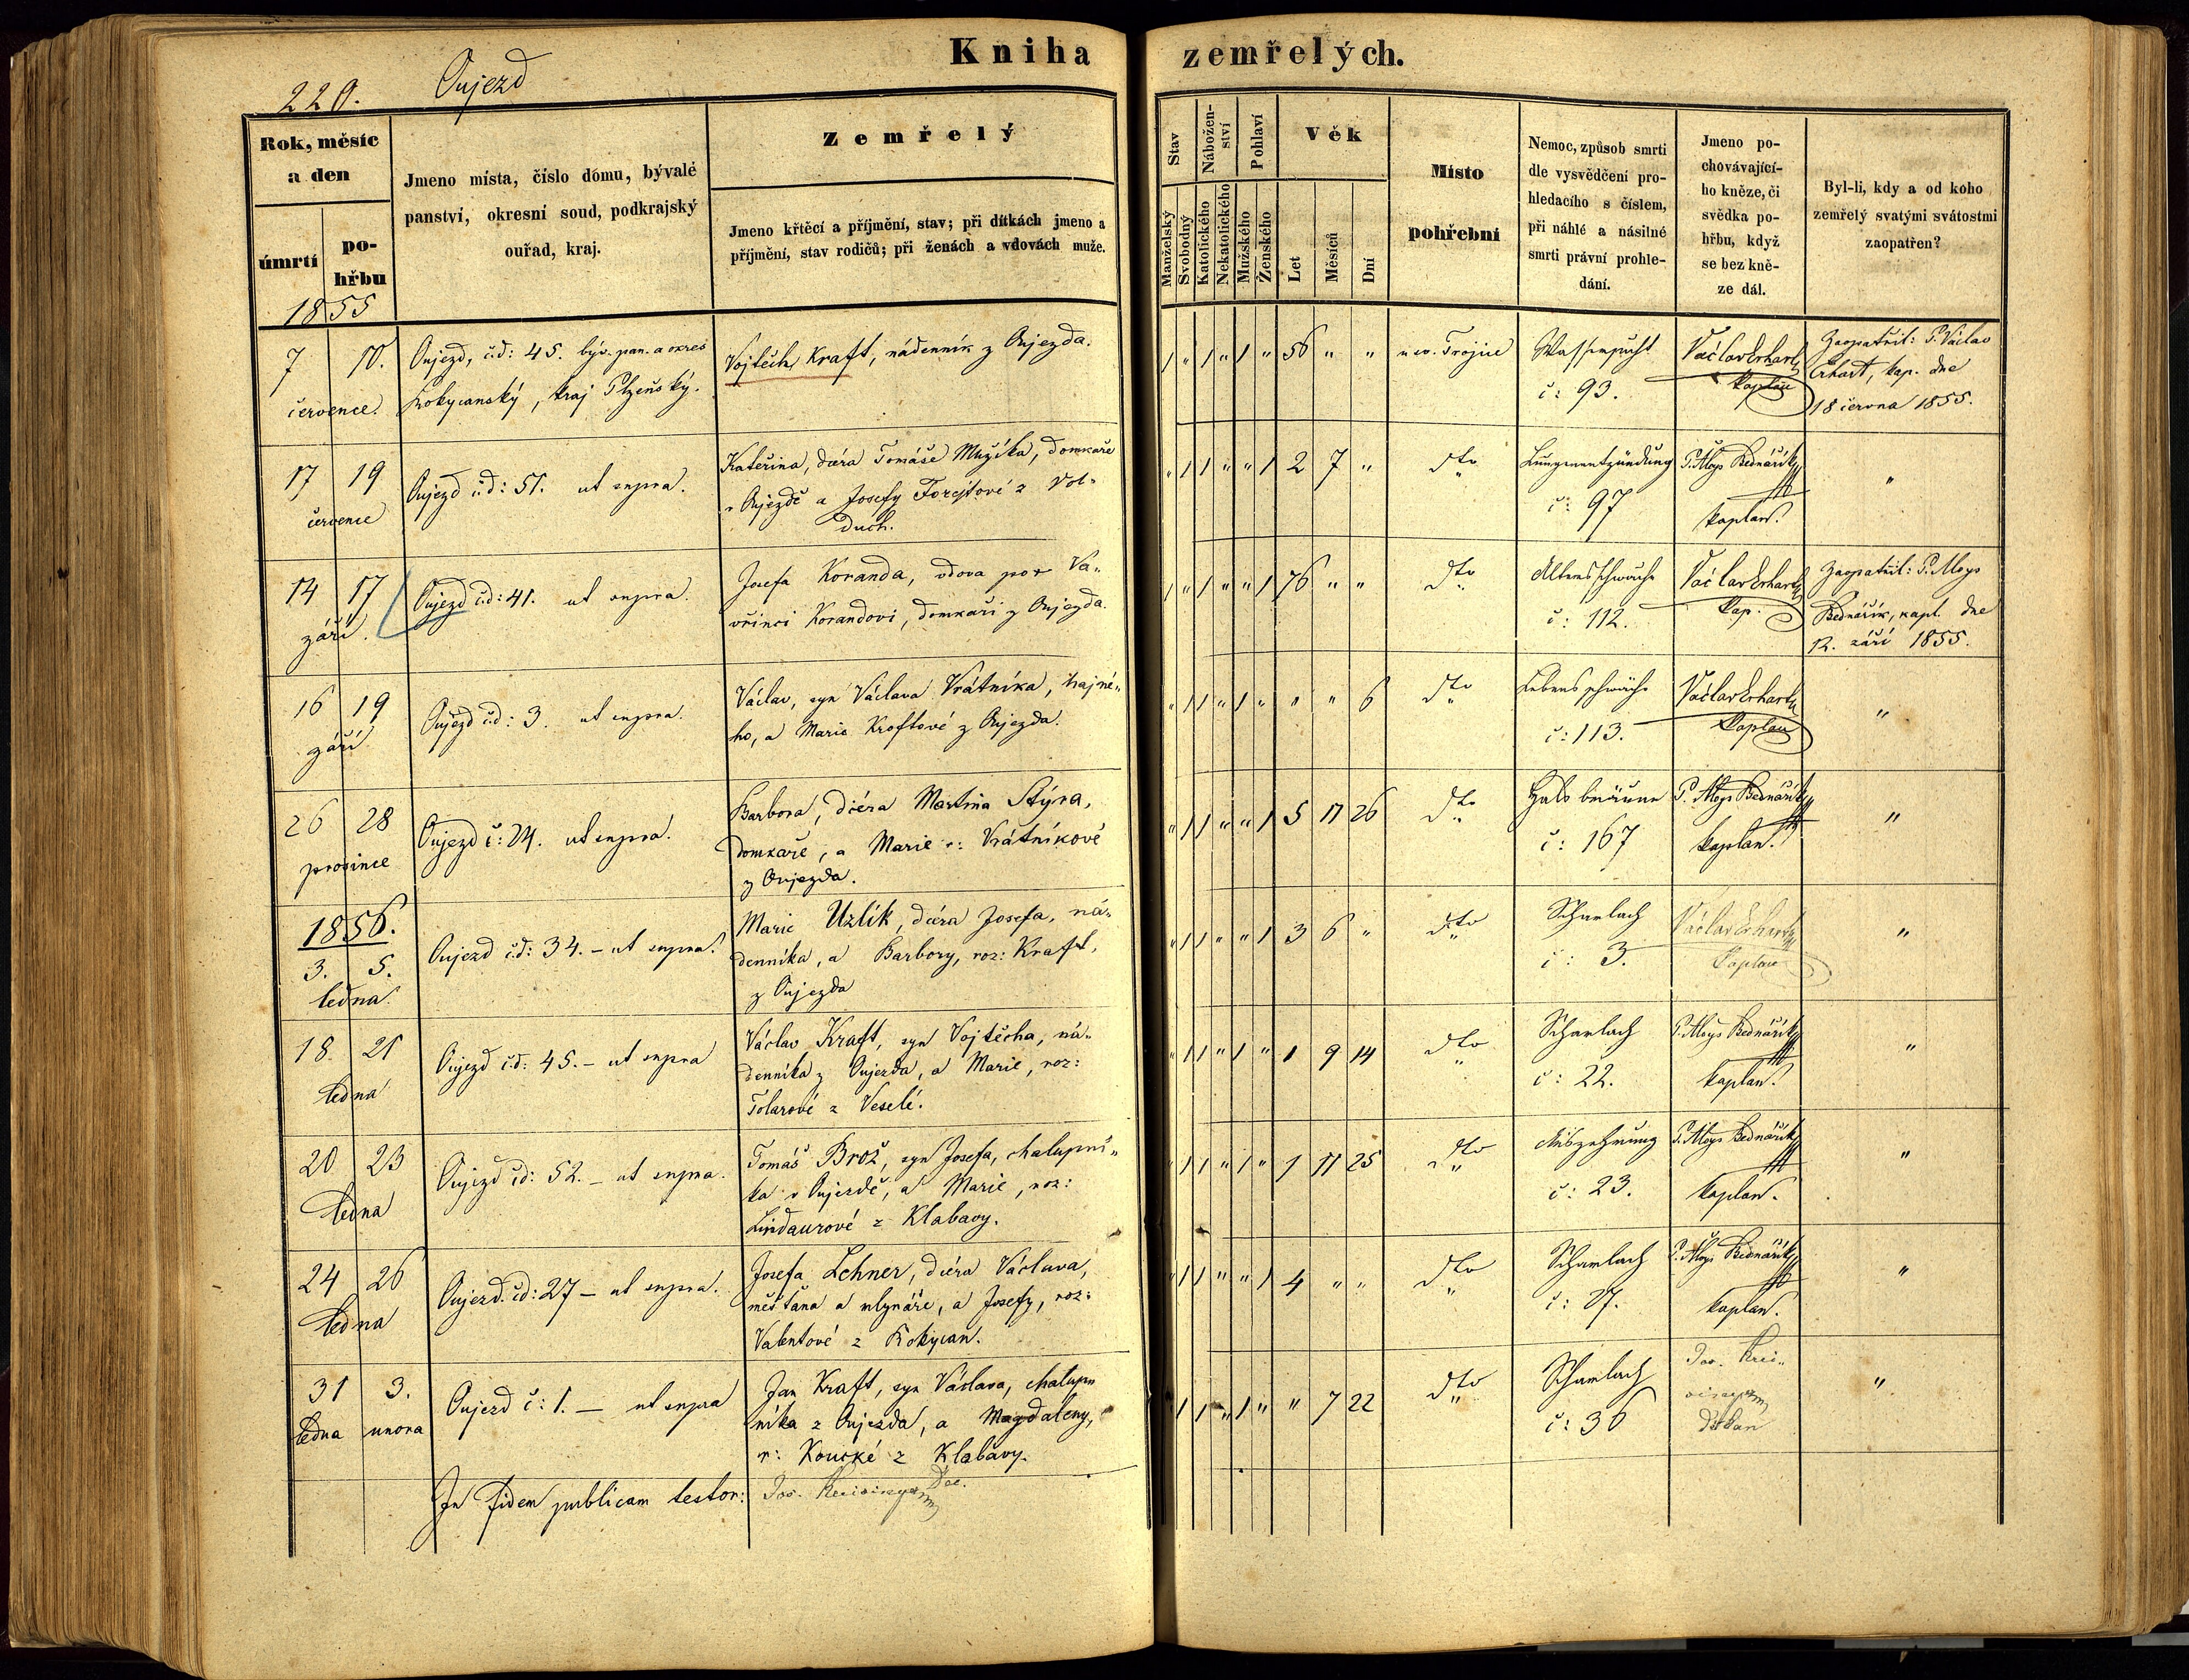 Kniha zemřelých.
220. Oujezd
Rok, měsíc a den
úmrtí
pohřbu
Jmeno místa, číslo domu, bývalé
panství, okresní soud, podkrajský
ouřad, kraj.
Zemřelý
Jmeno křtěcí a příjmění, stav; při dítkách jmeno a
příjmění, stav rodičů; při ženách a vdovách muže.
Stav
Manželský
Svobodný
Nábožen-
ství
Katolického
Nekatolického
Pohlaví
Mužského
Ženského
Věk
Let
Měsíců
Dní
Místo
pohřební
Nemoc, způsob smrti
dle vysvědčení pro-
hledacího s číslem,
při náhlé a násilné
smrti právní prohle-
dání.
Jmeno po-
chovávající-
ho kněze, či
svědka po-
hřbu, když
se bez kně-
ze dál.
Byl-li, kdy a od koho
zemřelý svatými svátostmi
zaopatřen?
1855
7 10.
července.
Oujezd, č.d: 45. býv. pan. a okres
Rokycanský, kraj Plzeňský.
Vojtěch Kraft, nádenník z Oujezda.
1 " 1 " 1 " 56 " "
u sv. Trojice
Wassersucht
č: 93.
Václav Erhart
kaplan
Zaopatřil: P. Václav
Erhart, kap. dne
18 června 1855.
17 19
července
Oujezd č.d: 51. ut supra.
Kateřina, dcera Tomáše Mužíka, domkaře
v Oujezdě a Josefy Forejtové z Vol-
duch.
" 1 1 " " 1 2 7 "
dto
Lungenentzündung
č: 97
P. Aloys Bednářík
kaplan.
"
14 17
září.
Oujezd č.d: 41. ut supra.
Josefa Koranda, vdova po Va-
vřinci Korandovi, domkaři z Oujezda.
1 " 1 " " 1 76 " "
dto
Altersschwäche
č: 112.
Václav Erhart
kap.
Zaopatřil: P. Aloys
Bednářík, kapl. dne
12. září 1855.
16 19
září
Oujezd č.d: 3. ut supra.
Václav, syn Václava Vrátníka, hajné-
ho, a Marie Kroftové z Oujezda.
" 1 1 " 1 " " " 6
dto
Lebensschwäche
č: 113.
Václav Erhart
kaplan
"
26 28
prosince
Oujezd č: 24. ut supra.
Barbora, dcera Martina Stýra,
domkaře, a Marie r: Vrátníkové
z Oujezda.
" 1 1 " " 1 5 11 26
dto
Halsbräune
č: 167
P. Aloys Bednářík
kaplan.
"
1856.
3. 5.
ledna.
Oujezd č.d: 34. – ut supra.
Marie Uzlík, dcera Josefa, ná-
denníka, a Barbory, roz: Kraft,
z Oujezda
" 1 1 " " 1 3 6 "
dto
Scharlach
č: 3.
Václav Erhart
kaplan
"
18. 21
ledna
Oujezd č.d: 45. – ut supra
Václav Kraft, syn Vojtěcha, ná-
denníka z Oujezda, a Marie, roz:
Tolarové z Veselé.
" 1 1 " 1 " 1 9 14
dto
Scharlach
č: 22.
P. Aloys Bednářík
kaplan.
"
20 23
ledna
Oujezd č.d: 52. – ut supra.
Tomáš Brož, syn Josefa, chalupní-
ka v Oujezdě, a Marie, roz:
Lindaurové z Klabavy.
" 1 1 " 1 " 1 11 25
dto
Auszehrung
č: 23.
P. Aloys Bednářík
kaplan.
"
24 26
ledna
Oujezd. č.d: 27 – ut supra.
Josefa Lehner, dcera Václava,
měšťana a mlynáře, a Josefy, roz:
Valentové z Rokycan.
" 1 1 " " 1 4 " "
dto
Scharlach
č: 27.
P. Aloys Bednářík
kaplan.
"
31 3.
ledna unora
Oujezd č: 1. – ut supra
Jan Kraft, syn Václava, chalup-
níka z Oujezda, a Magdaleny,
r: Koucké z Klabavy.
" 1 1 " 1 " " 7 22
dto
Scharlach
č: 36
Jos.
děkan
"
In fidem publicam testor: Jos. Dec.